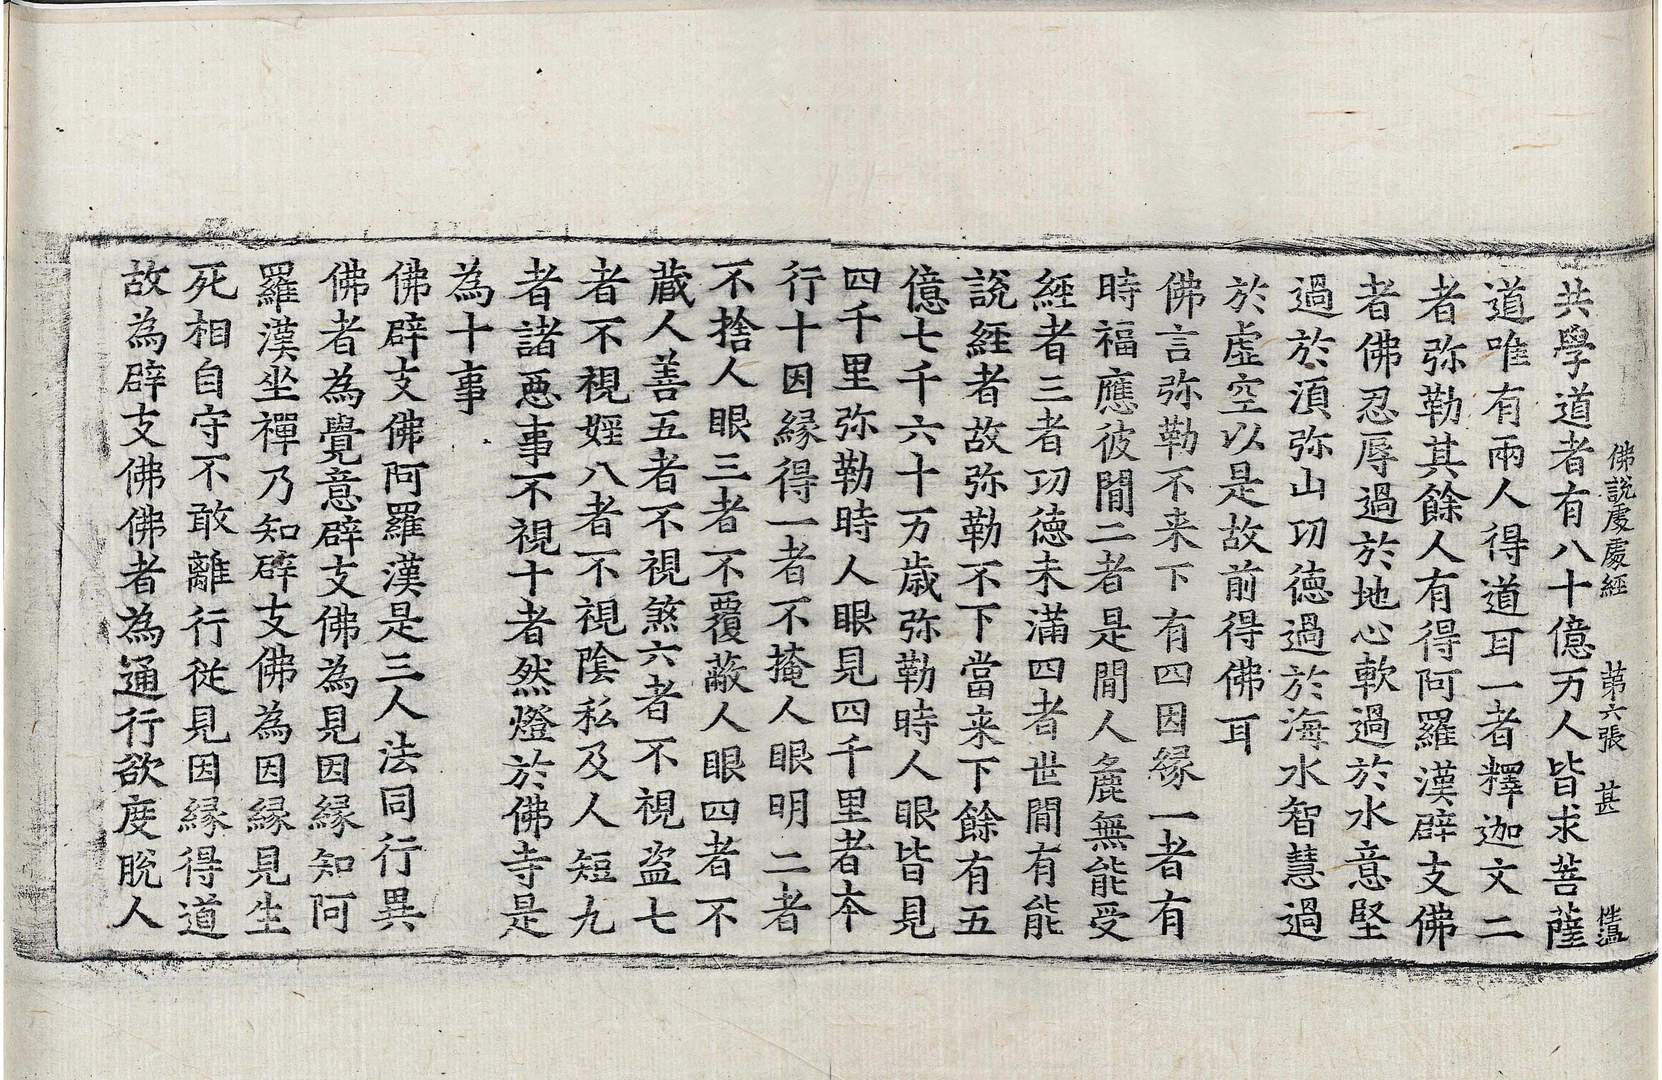 佛說處處經　第六張　甚　惟溫
共學道者有八十億万人皆求菩薩
道唯有兩人得道耳一者釋迦文二
者弥勒其餘人有得阿羅漢辟支佛
者佛忍辱過於地心軟過於水意堅
過於湏弥山功德過於海水智慧過
於虛空以是故前得佛耳
佛言弥勒不来下有四因縁一者有
時福應彼間二者是間人麁無能受
經者三者功德未滿四者世間有能
說經者故弥勒不下當来下餘有五
億七千六十万歳弥勒時人眼皆見
四千里弥勒時人眼見四千里者本
行十因縁得一者不掩人眼明二者
不捨人眼三者不覆蔽人眼四者不
蔵人善五者不視煞六者不視盗七
者不視婬八者不視隂私及人短九
者諸惡事不視十者然燈於佛寺是
為十事
佛辟支佛阿羅漢是三人法同行異
佛者為覺意辟支佛為見因縁知阿
羅漢坐禪乃知辟支佛為因縁見生
死相自守不敢離行從見因縁得道
故為辟支佛佛者為通行欲度脫人